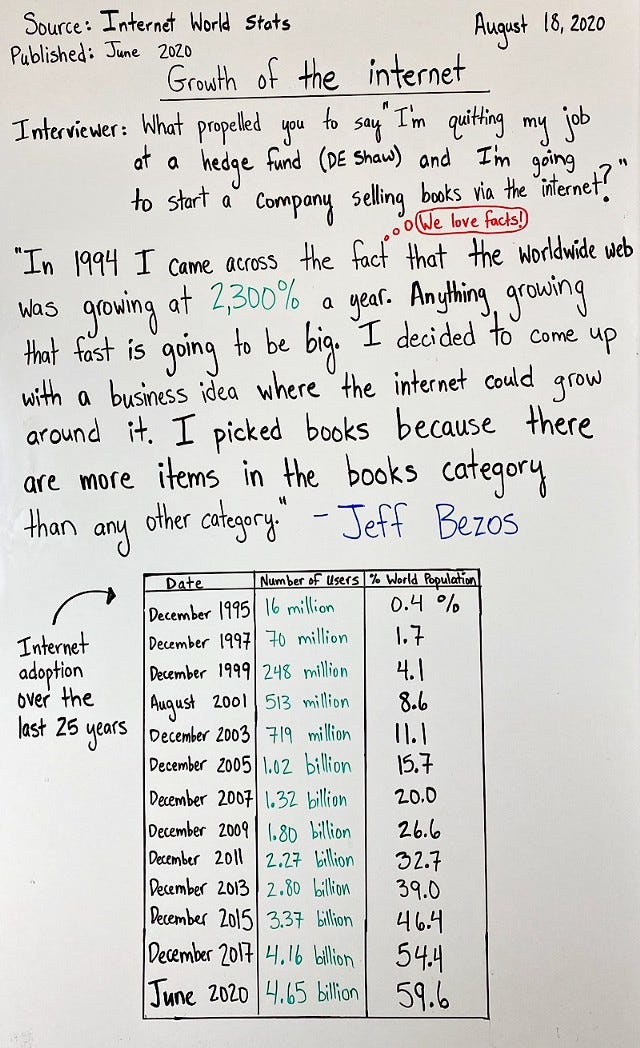 Source: Internet World Stats
August 18, 2020
Published: June 2020
Growth of the internet
Interviewer: What propelled you to say "I'm quitting my job
at a hedge fund (DE Shaw) and I'm going
to start a company selling books via the internet?"
We love facts!
"In 1994 I came across the fact that the worldwide web
was growing at 2,300% a year. Anything growing
that fast is going to be big. I decided to come up
with a business idea where the internet could grow
around it. I picked books because there
are more items in the books category
than any other category." - Jeff Bezos
Internet
adoption
over the
last 25 years
Date Number of Users % World Population
December 1995 16 million 0.4 %
December 1997 70 million 1.7
December 1999 248 million 4.1
August 2001 513 million 8.6
December 2003 719 million 11.1
December 2005 1.02 billion 15.7
December 2007 1.32 billion 20.0
December 2009 1.80 billion 26.6
December 2011 2.27 billion 32.7
December 2013 2.80 billion 39.0
December 2015 3.37 billion 46.4
December 2017 4.16 billion 54.4
June 2020 4.65 billion 59.6